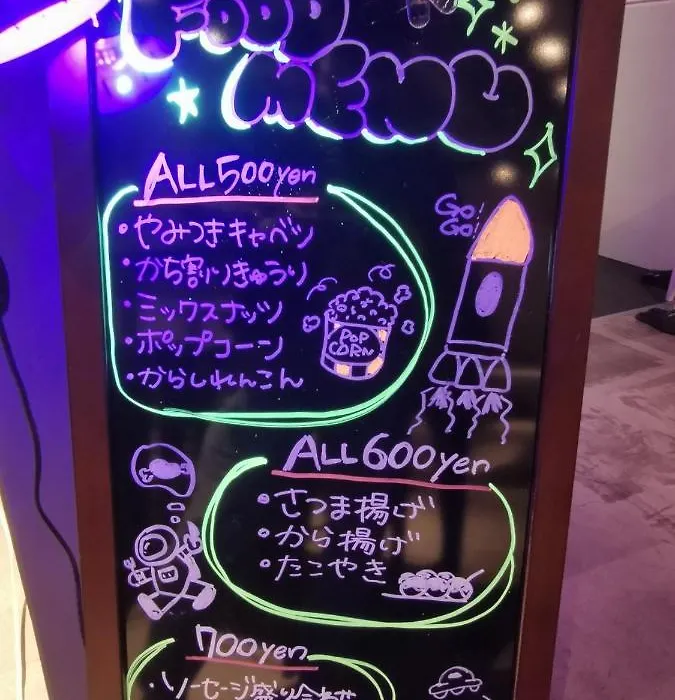 FOOD
MENU
ALL 500yen
・やみつきキャベツ
・かち割りきゅうり
・ミックスナッツ
・ポップコーン
・からしれんこん
GO
GO!
POP
CORN
ALL 600yen
・さつま揚げ
・から揚げ
・たこやき
700yen
・ソーセージ盛り合わせ